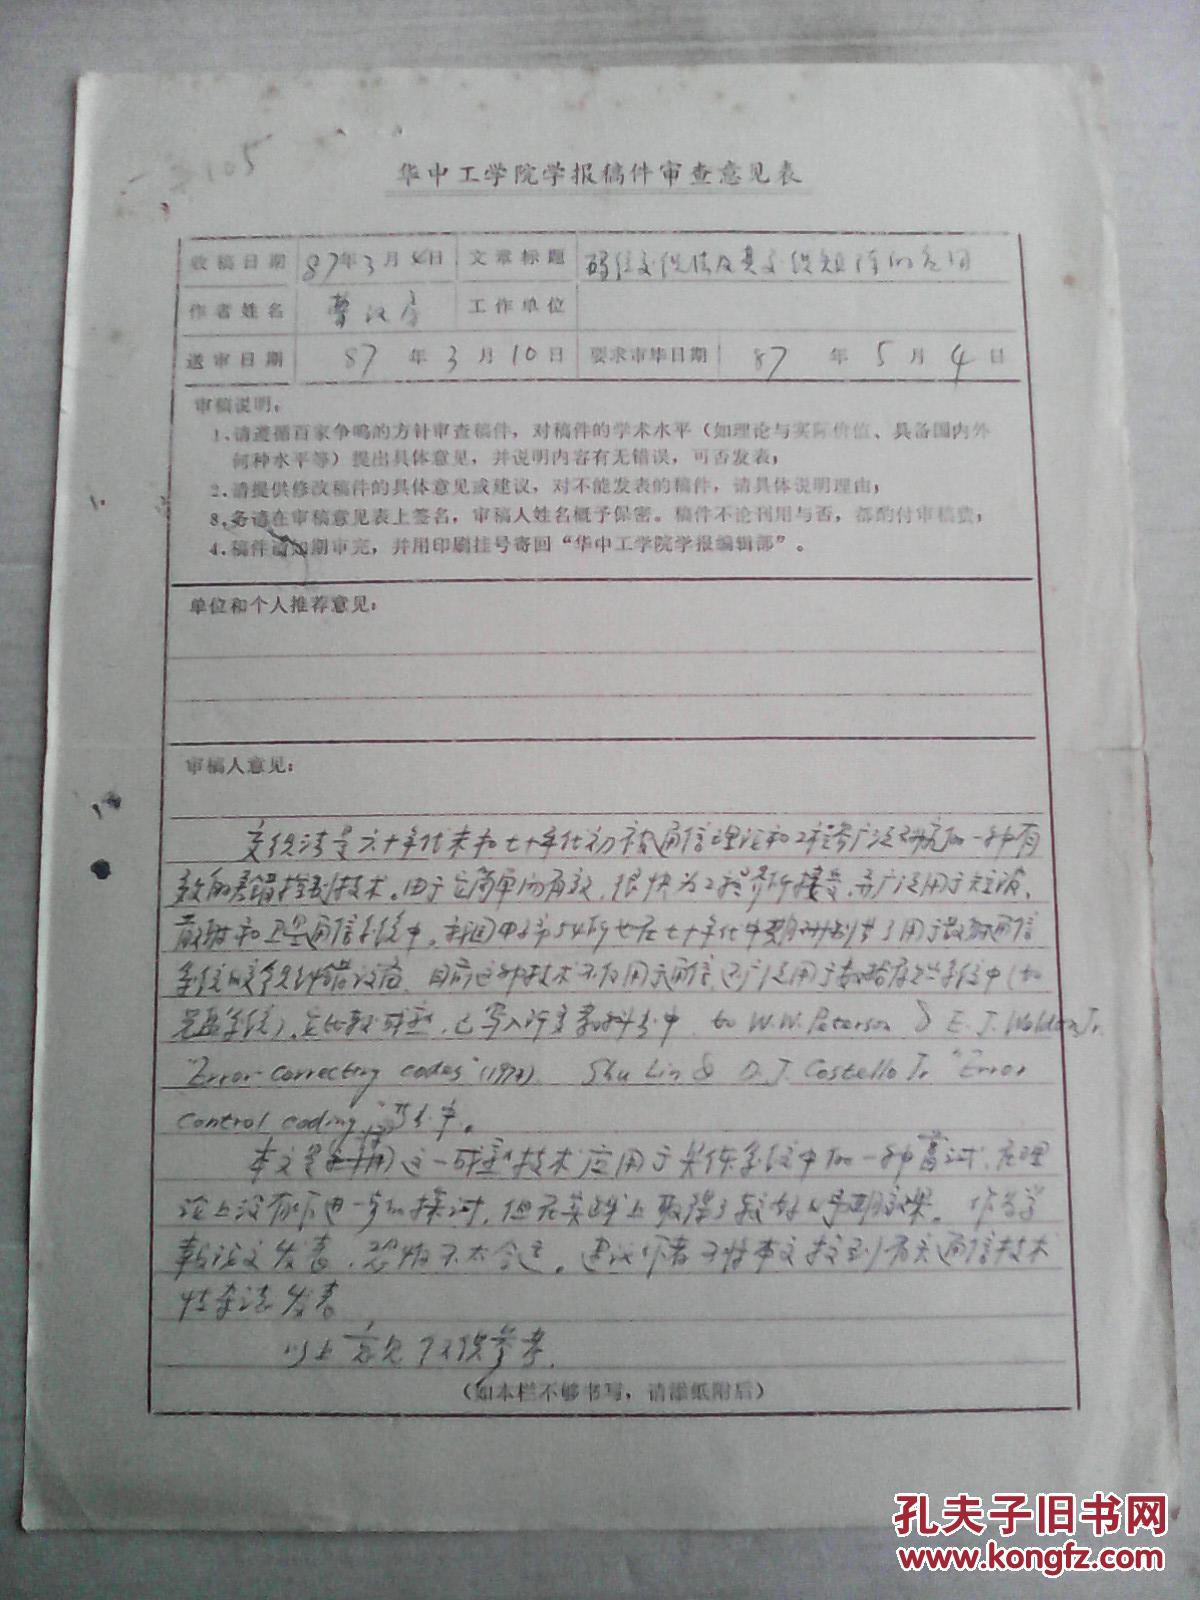 105
华中工学院学报稿件审查意见表
收稿日期 87年3月4日 文章标题 码位交织法及其交织矩阵的应用
作者姓名 曹汉房 工作单位
送审日期 87年3月10日 要求审毕日期 87年5月4日
审稿说明：
1.请遵循百家争鸣的方针审查稿件，对稿件的学术水平（如理论与实际价值、具备国内外
何种水平等）提出具体意见，并说明内容有无错误，可否发表；
2.请提供修改稿件的具体意见或建议，对不能发表的稿件，请具体说明理由；
3.务请在审稿意见表上签名，审稿人姓名概予保密。稿件不论刊用与否，都酌付审稿费；
4.稿件请如期审完，并用印刷挂号寄回“华中工学院学报编辑部”。
单位和个人推荐意见：
审稿人意见：
交织法是六十年代末和七十年代初被通信理论和工程界广泛研究的一种有
效的差错控制技术。由于它简单而有效，很快为工程界所接受，并广泛用于短波、
散射和卫星通信系统中。我国电子部54所也在七十年代中期研制出了用于散射通信
系统的交织纠错设备。目前这种技术不仅用于通信，还广泛用于数据存贮系统中（如
光盘系统）。它比较成熟，已写入许多教科书中，如W.W. Peterson & E.J. Weldon Jr.
"Error-correcting codes"(1972) Shu Lin & D.J. Costello Jr "Error
control coding" 等书中。
本文是这一成熟技术应用于某体系统中的一种尝试，在理
论上没有作进一步的探讨，但在实践上取得了较好的预期效果。作为学
报论文发表，恐怕不太合适。建议作者可将本文投到有关通信技术
性杂志发表。
以上意见仅供参考。
（如本栏不够书写，请添纸附后）
孔夫子旧书网
www.kongfz.com